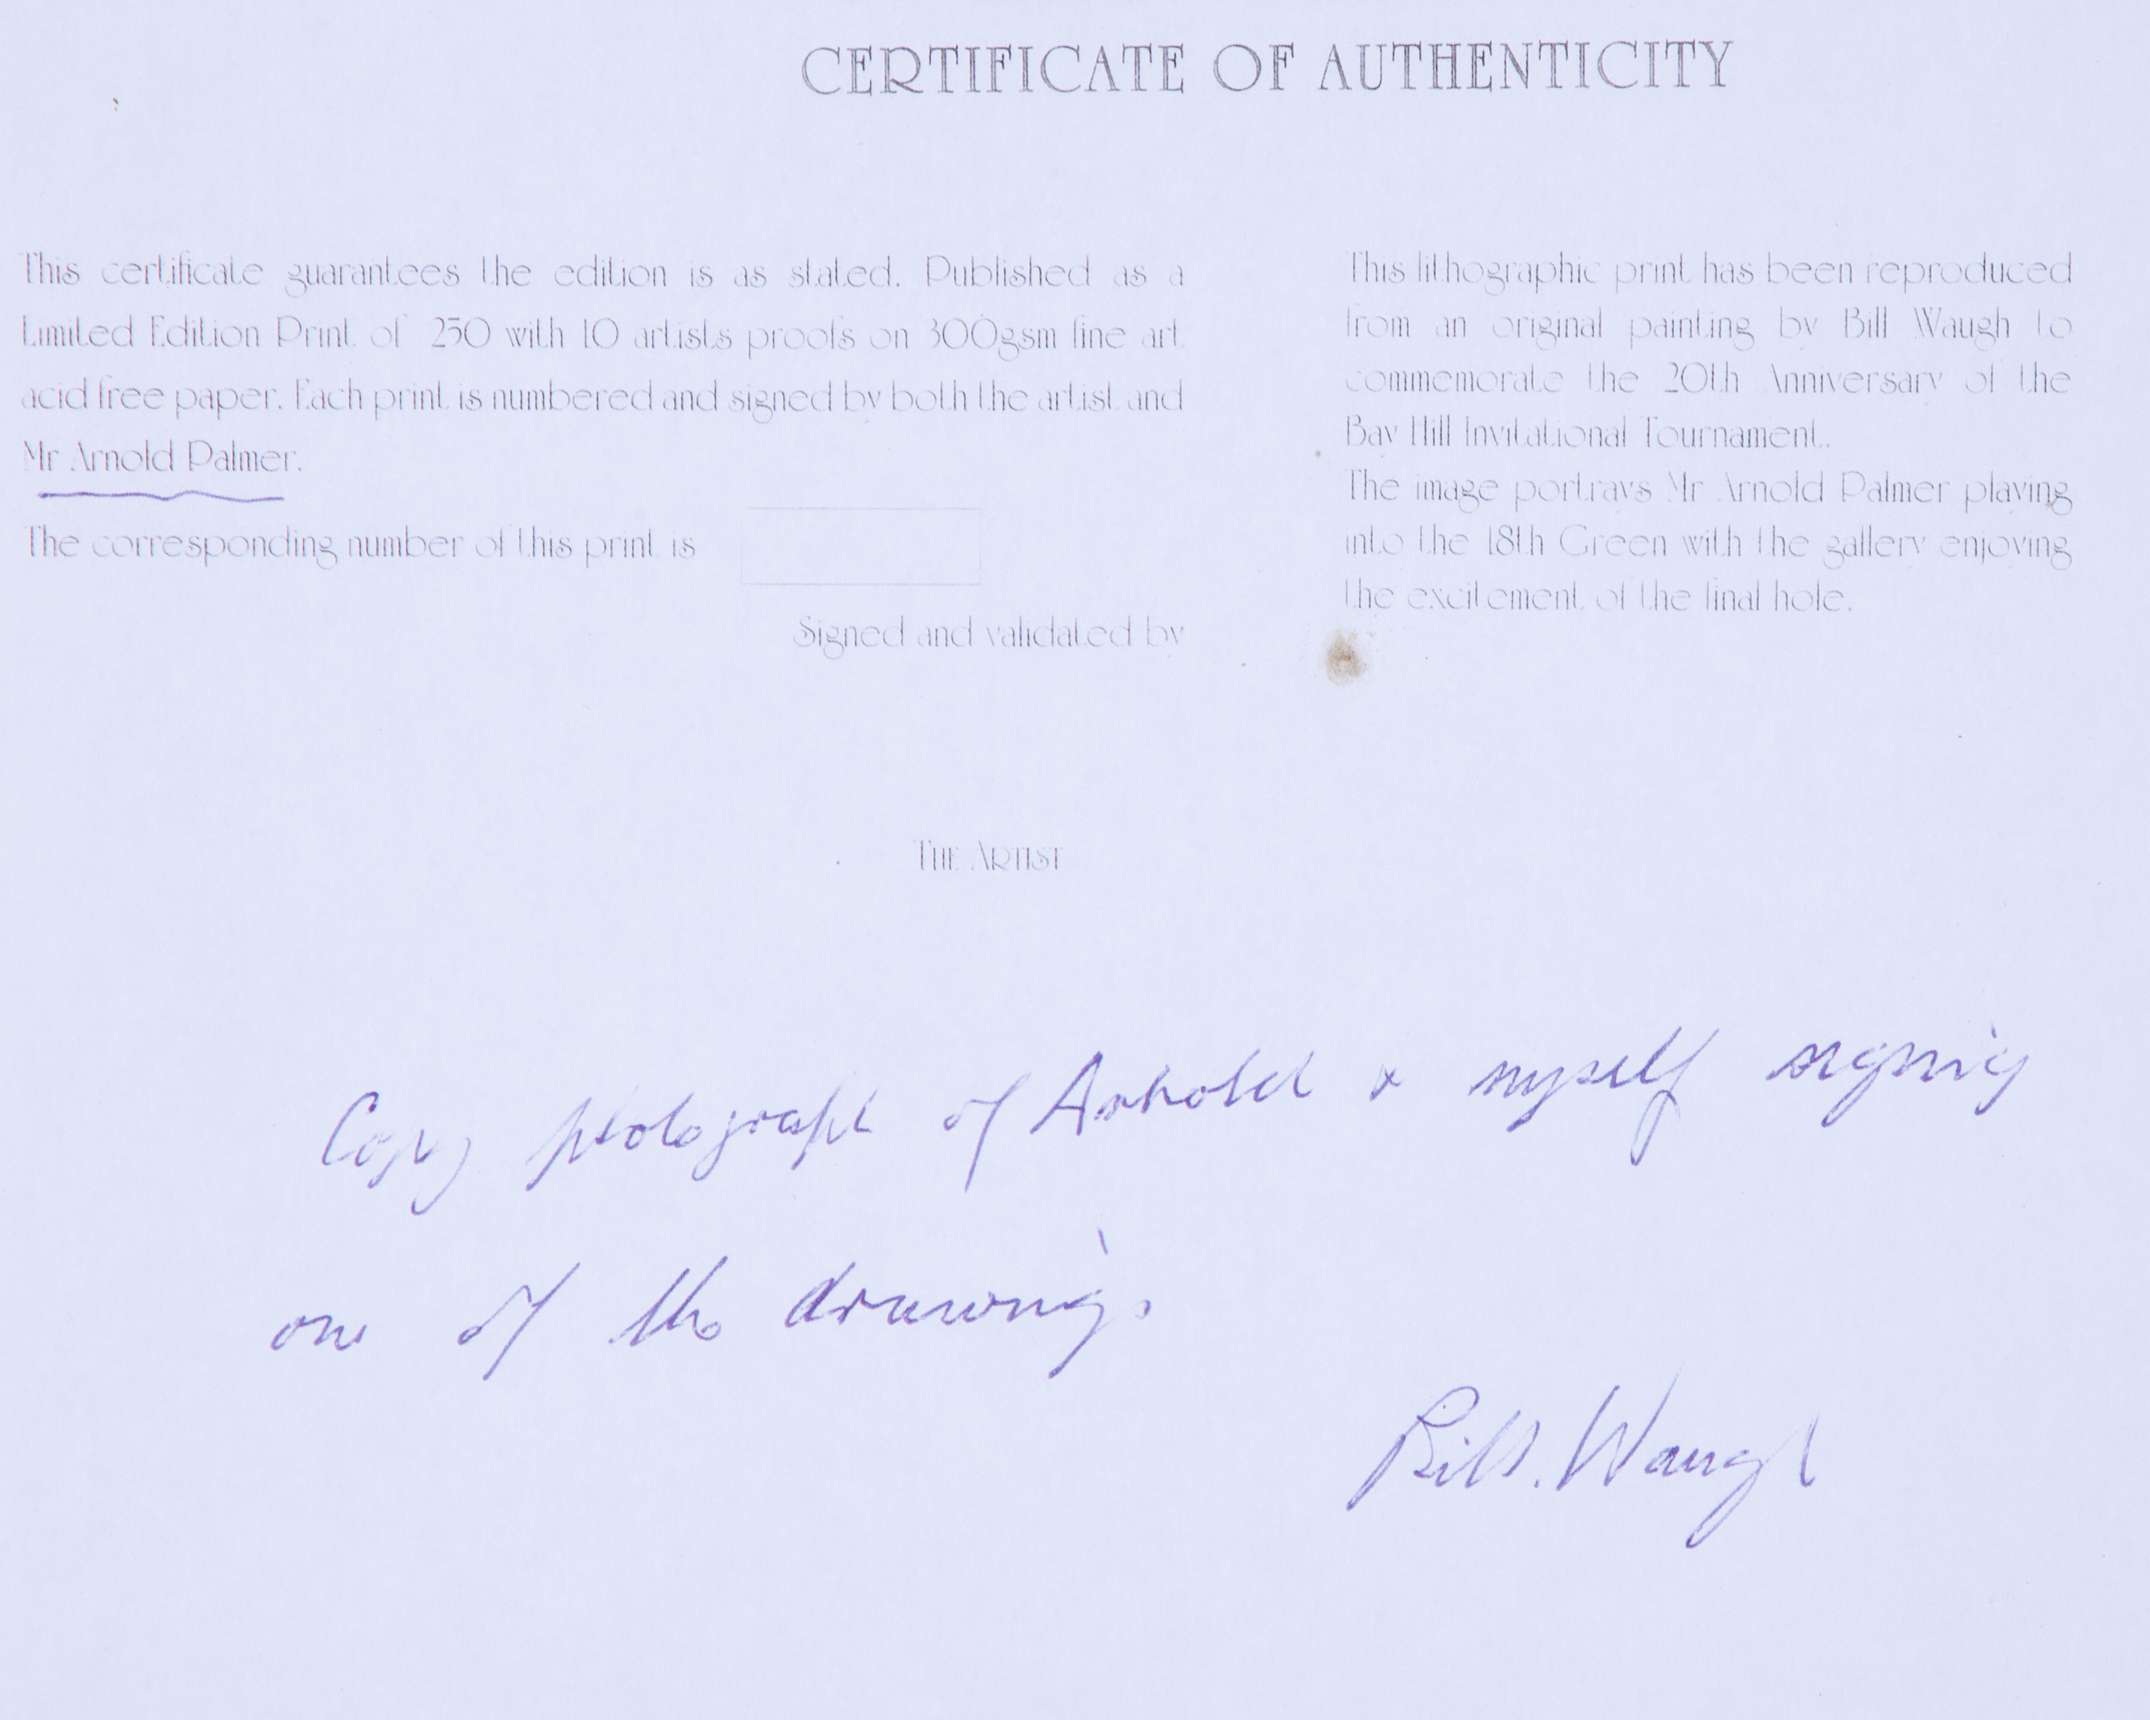 CERTIFICATE OF AUTHENTICITY
This certificate guarantees the edition is as stated. Published as a
Limited Edition Print of 250 with 10 artists proofs on 300gsm fine art
acid free paper. Each print is numbered and signed by both the artist and
Mr Arnold Palmer.
The corresponding number of this print is
Signed and validated by
THE ARTIST
This lithographic print has been reproduced
from an original painting by Bill Waugh to
commemorate the 20th Anniversary of the
Bay Hill Invitational Tournament.
The image portrays Mr Arnold Palmer playing
into the 18th Green with the gallery enjoying
the excitement of the final hole.
Copy photograph of Arnold & myself signing
one of the drawings.
Bill. Waugh